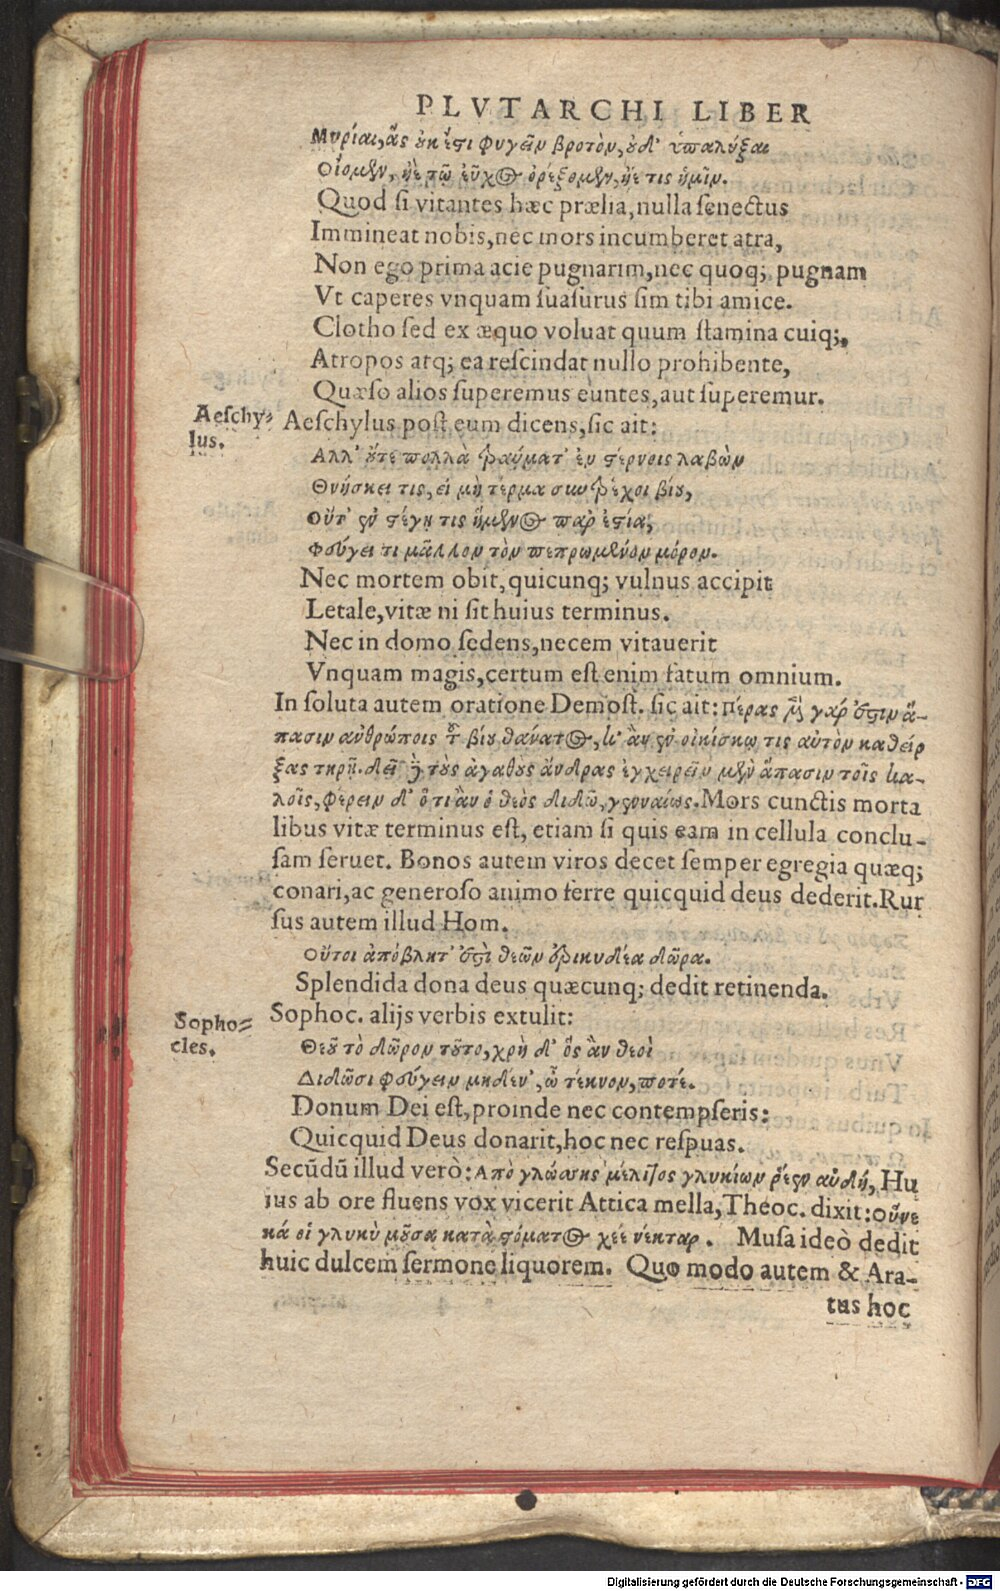 PLVTARCHI LIBER
Μυρίαι, ἃς ουκ ἔστι φυγεῖν βροτὸν, ουδ' ὑπαλύξαι
Οἴομεν, ηὲ τῳ εὖχος ὀρέξομεν, ηέ τις ἡμῖν.
Quod si vitantes hæc prælia, nulla senectus
Immineat nobis, nec mors incumberet atra,
Non ego prima acie pugnarim, nec quoq; pugnam
Vt caperes vnquam suasurus sim tibi amice.
Clotho sed ex æquo voluat quum stamina cuiq;,
Atropos atq; ea rescindat nullo prohibente,
Quæso alios superemus euntes, aut superemur.
Aeschy-
lus.
Aeschylus post eum dicens, sic ait:
Αλλ' οὔτε πολλὰ τραύματ' ἐν στέρνοις λαβὼν
Θνήσκει τις, εἰ μὴ τέρμα συντρέχοι βίου,
Οὔτ' ἐν στέγῃ τις ἥμενος παρ' ἑστίᾳ,
Φεύγει τι μᾶλλον τὸν πεπρωμένον μόρον.
Nec mortem obit, quicunq; vulnus accipit
Letale, vitæ ni sit huius terminus.
Nec in domo sedens, necem vitauerit
Vnquam magis, certum est enim fatum omnium.
In soluta autem oratione Demost. sic ait: Πέρας μὲν γάρ ἐστιν ἅ-
πασιν ανθρώποις τοῦ βίου θάνατος, κἂν ἐν οἰκίσκῳ τις αὑτὸν καθείρ
ξας τηρῇ. δεῖ δὲ τοὺς ἀγαθοὺς ἄνδρας ἐγχειρεῖν μὲν ἅπασιν τοῖς κα-
λοῖς, φέρειν δ' ὅτι ἂν ὁ θεὸς διδῶ, γενναίως. Mors cunctis morta
libus vitæ terminus est, etiam si quis eam in cellula conclu-
sam seruet. Bonos autem viros decet semper egregia quæq;
conari, ac generoso animo ferre quicquid deus dederit. Rur
sus autem illud Hom.
Οὔτοι ἀπόβλητ' ἐστὶ θεῶν ἐρικυδέα δῶρα.
Splendida dona deus quæcunq; dedit retinenda.
Sopho-
cles.
Sophoc. alijs verbis extulit:
Θεοῦ τὸ δῶρον τοῦτο, χρὴ δ' ὅς ἂν θεοὶ
Διδῶσι φεύγειν μηδὲν', ὦ τέκνον, ποτέ.
Donum Dei est, proinde nec contempseris:
Quicquid Deus donarit, hoc nec respuas.
Secūdū illud verò: Απὸ γλώσσης μέλιτος γλυκίων ῥέεν αὐδή, Hu
ius ab ore fluens vox vicerit Attica mella, Theoc. dixit: οὕνε
κά οἱ γλυκὺ μοῦσα κατὰ στόματος χέε νέκταρ. Musa ideò dedit
huic dulcem sermone liquorem. Quo modo autem & Ara-
tus hoc
Digitalisierung gefördert durch die Deutsche Forschungsgemeinschaft - DFG